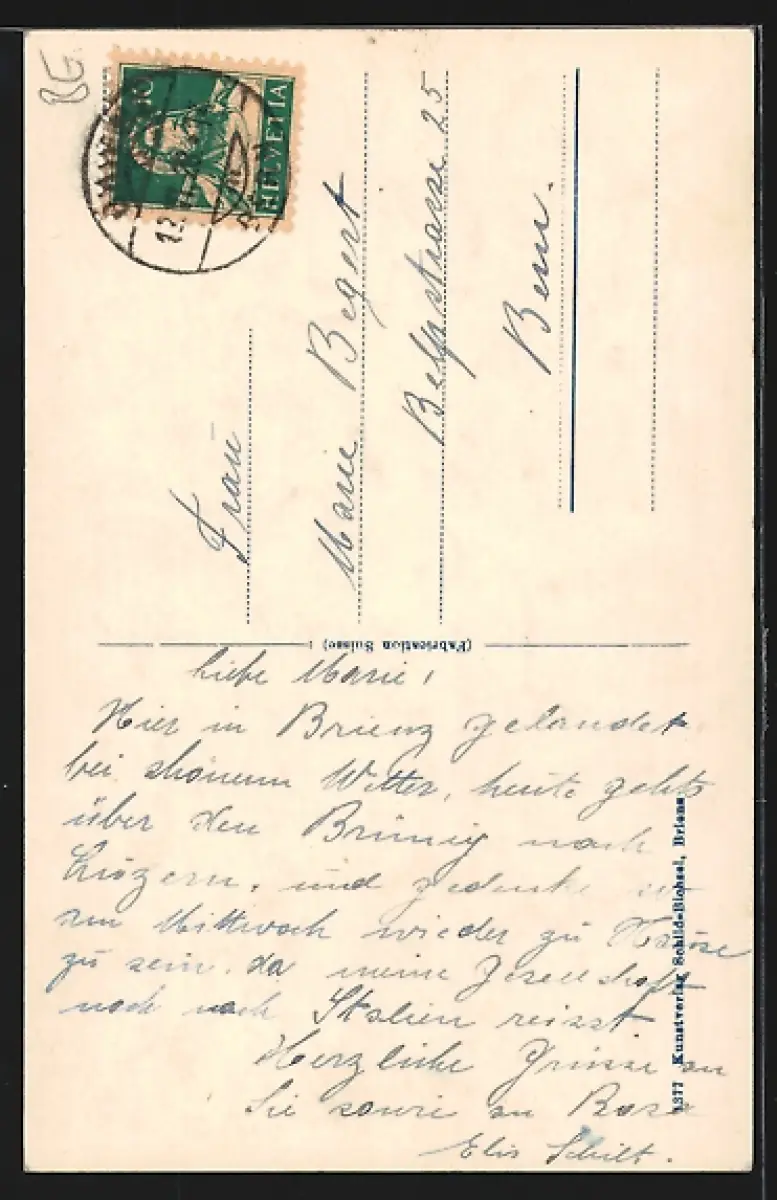 BE
10
HELVETIA
Frau
Marie Begert
Belpstrasse 25
Bern.
(Fabrication Suisse)
Liebe Marie!
Hier in Brienz gelandet
bei schönem Wetter, heute gehts
über den Brünig nach
Luzern, und gedenke
am Mittwoch wieder zu Hause
zu sein, da meine Gesellschaft
noch nach Italien reisst.
Herzliche Grüsse an
Sie sowie an Rosa
Elis Schilt.
1377 Kunstverlag Schild-Bichsel, Brienz